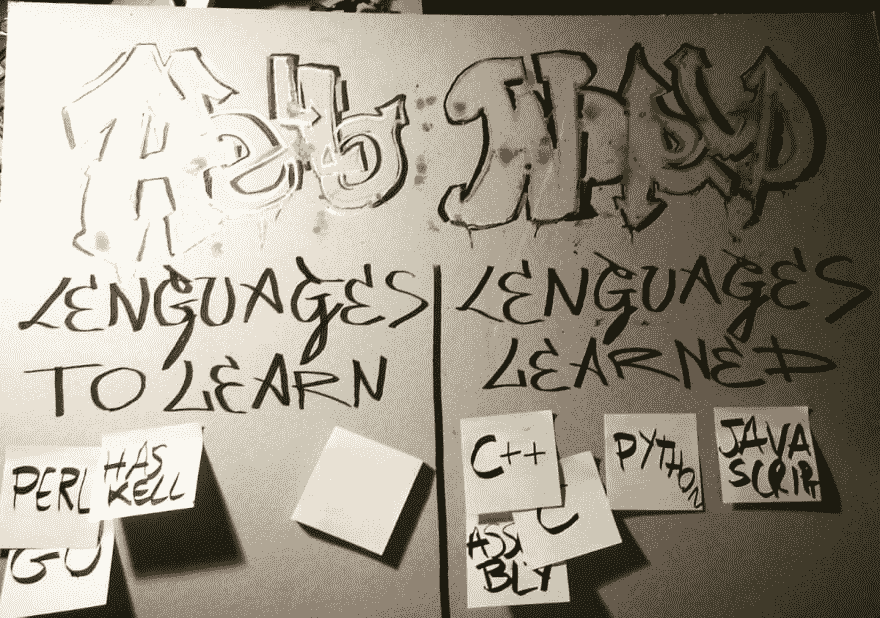 LENGUAGES
TO LEARN
PERL
HAS
KELL
GO
LENGUAGES
LEARNED
C++
C
ASS
BLY
PYTHON
JAVA
SCRIPT